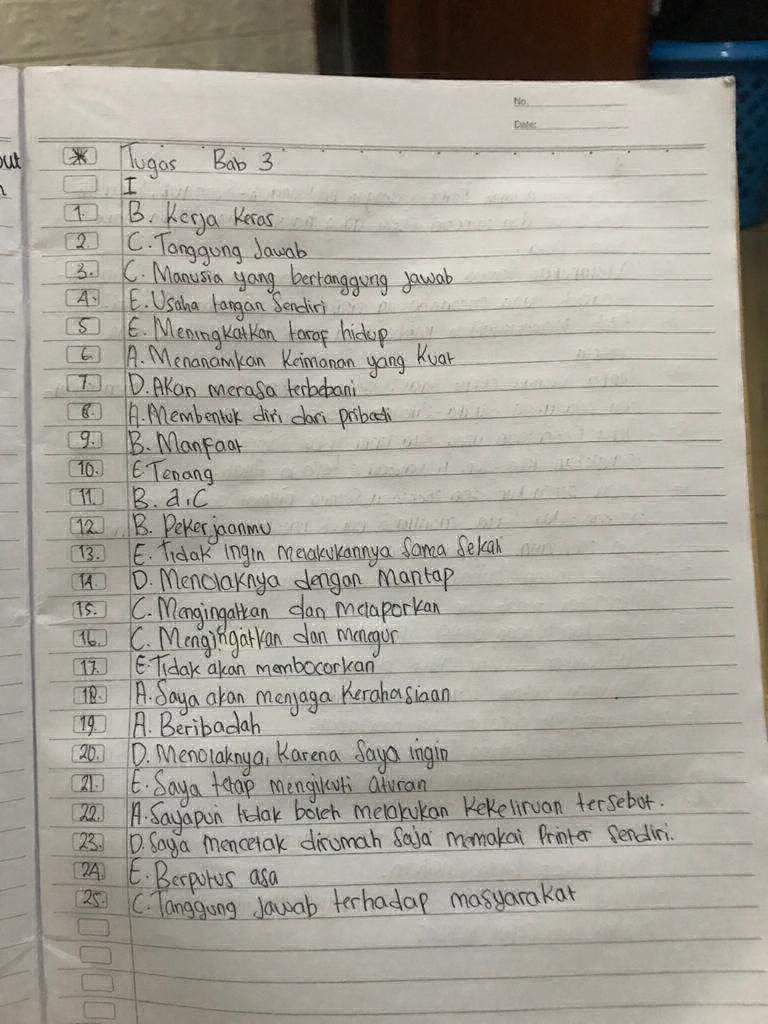 No.
Date:
out
n
* Tugas Bab 3
I
1. B. Kerja Keras
2. C. Tanggung Jawab
3. C. Manusia yang bertanggung jawab
4. E. Usaha tangan Sendiri
5 E. Meningkatkan taraf hidup
6. A. Menanamkan Keimanan yang Kuat
7. D. Akan merasa terbebani
8. A. Membentuk diri dari pribadi
9. B. Manfaat
10. E Tenang
11. B. a,c
12. B. Pekerjaanmu
13. E. Tidak ingin melakukannya Sama Sekali
14 D. Menolaknya dengan Mantap
15. C. Mengingatkan dan melaporkan
16. C. Mengingatkan dan menegur
17. E. Tidak akan membocorkan
18. A. Saya akan menjaga Kerahasiaan
19. A. Beribadah
20. D. Menolaknya, Karena Saya ingin
21. E. Saya tetap mengikuti aturan
22. A. Sayapun tidak boleh melakukan Kekeliruan tersebut.
23. D. Saya mencetak dirumah Saja memakai Printer Sendiri.
24 E. Berputus asa
25. C. Tanggung Jawab terhadap masyarakat